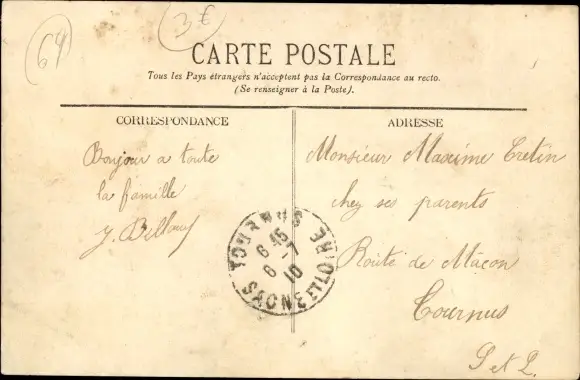 64
3€
CARTE POSTALE
Tous les Pays étrangers n'acceptent pas la Correspondance au recto.
(Se renseigner à la Poste).
CORRESPONDANCE
Bonjour a toute
la famille
J.
ADRESSE
Monsieur Maxime Cretin
chez ses parents
Route de Mâcon
Tournus
S et L.
TOURNUS
6 15
6 - 7
10
SAONE ET LOIRE